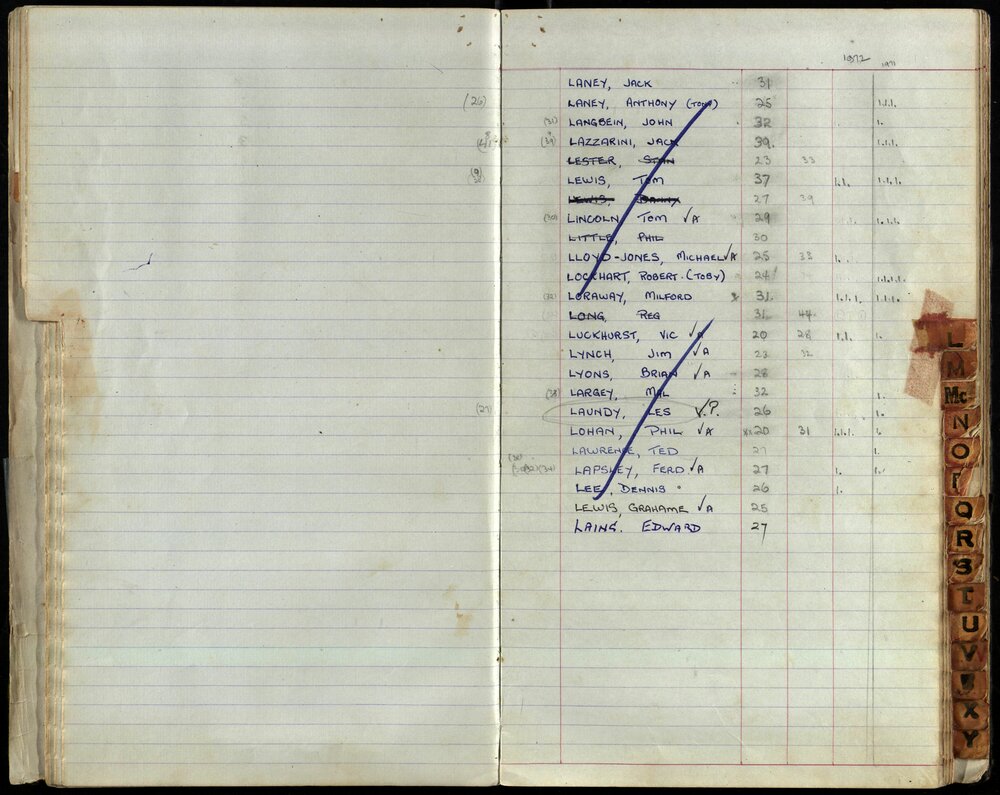 1972 1971
LANEY, JACK 31
(26) LANEY, ANTHONY (TONY) 25 1.1.1.
(31) LANGBEIN, JOHN 32 1.
(39) LAZZARINI, JACK 39. 1.1.1.
LESTER, STAN 23 33
LEWIS, TOM 37 1.1. 1.1.1.
LEWIS, 27 39
(30) LINCOLN, TOM √A 29 1.1.1.
LITTLE, PHIL 30
LLOYD-JONES, MICHAEL √A 25 33 1.
LOCKHART, ROBERT. (TOBY) 24 1.1.1.1.
(32) LORAWAY, MILFORD 31. 1.1.1. 1.1.1.
LONG, REG 31 44
LUCKHURST, VIC √A 20 28 1.1. 1.
LYNCH, JIM √A 23 32
LYONS, BRIAN √A 28
(33) LARGEY, MAL 32 1.
(27) LAUNDY, LES √.? 26 1.
LOHAN, PHIL √A 20 31 1.1.1. 1.
LAWRENCE, TED 27 1.
(34) LAPSLEY, FERD √A 27 1. 1.
LEE, DENNIS 26 1.
LEWIS, GRAHAME √A 25
LAING. EDWARD 27
L
M
Mc
N
O
P
Q
R
S
T
U
V
W
X
Y